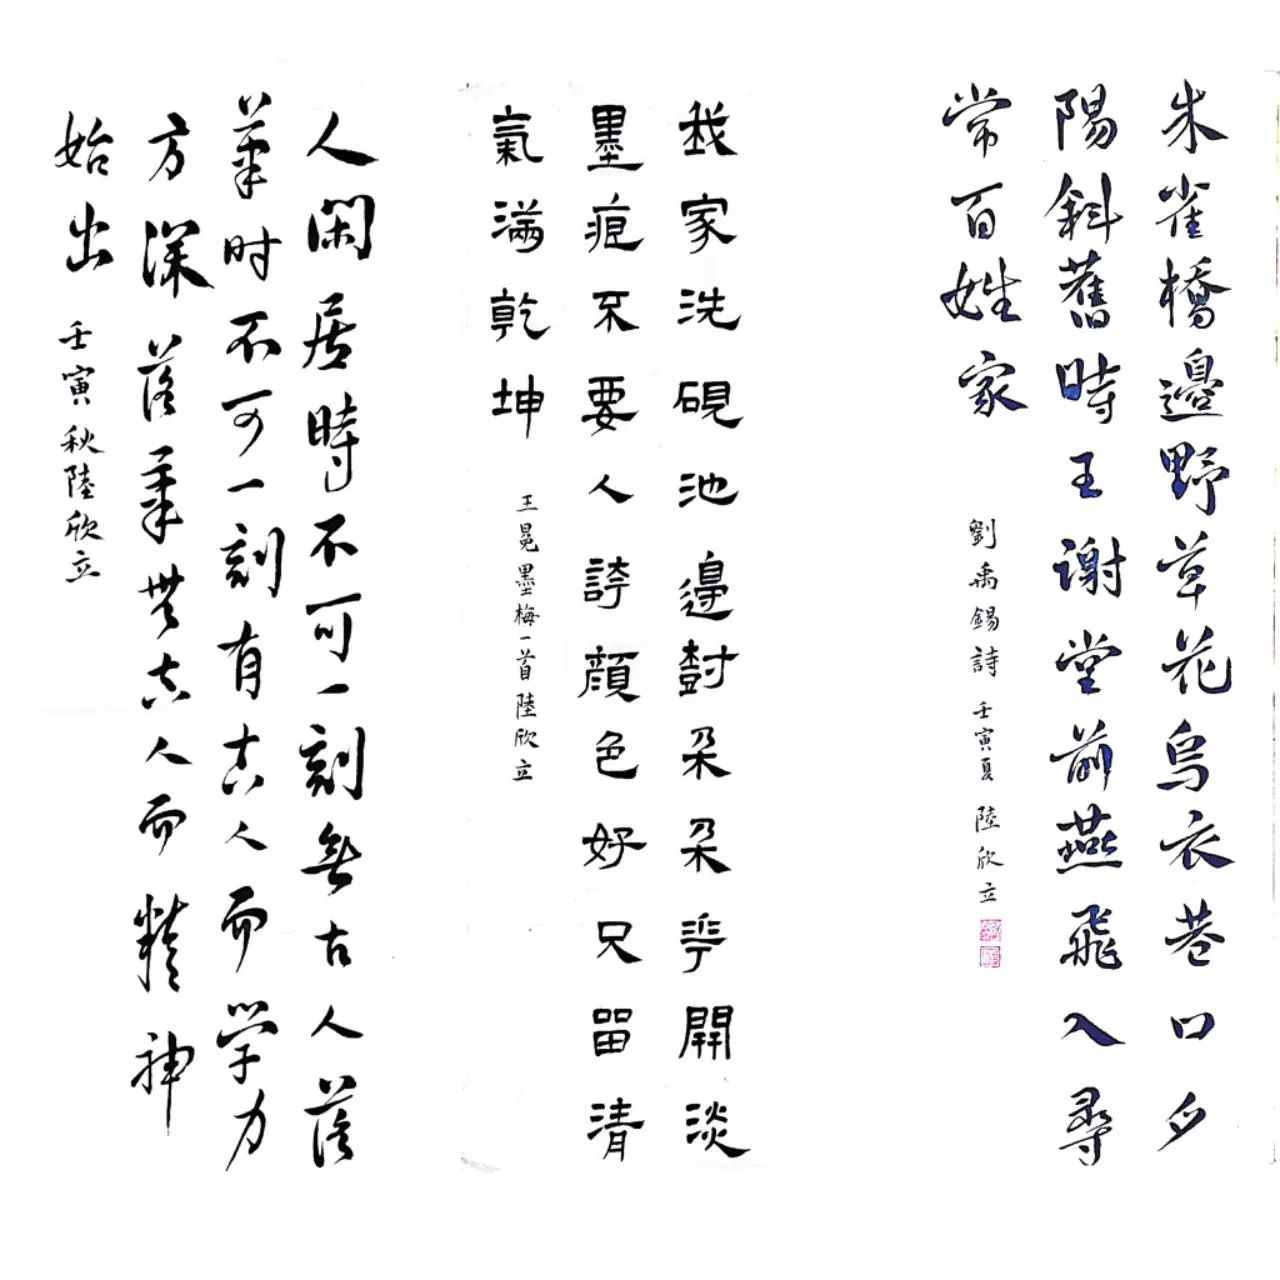 朱雀橋邊野草花烏衣巷口夕
陽斜舊時王謝堂前燕飛入尋
常百姓家
劉禹錫詩 壬寅夏 陸欣立
我家洗硯池邊樹朵朵花開淡
墨痕不要人誇顏色好只留清
氣滿乾坤
王冕墨梅一首陸欣立
人閑居時不可一刻無古人落
筆时不可一刻有古人而学力
方深落筆無古人而精神
始出 壬寅秋陸欣立